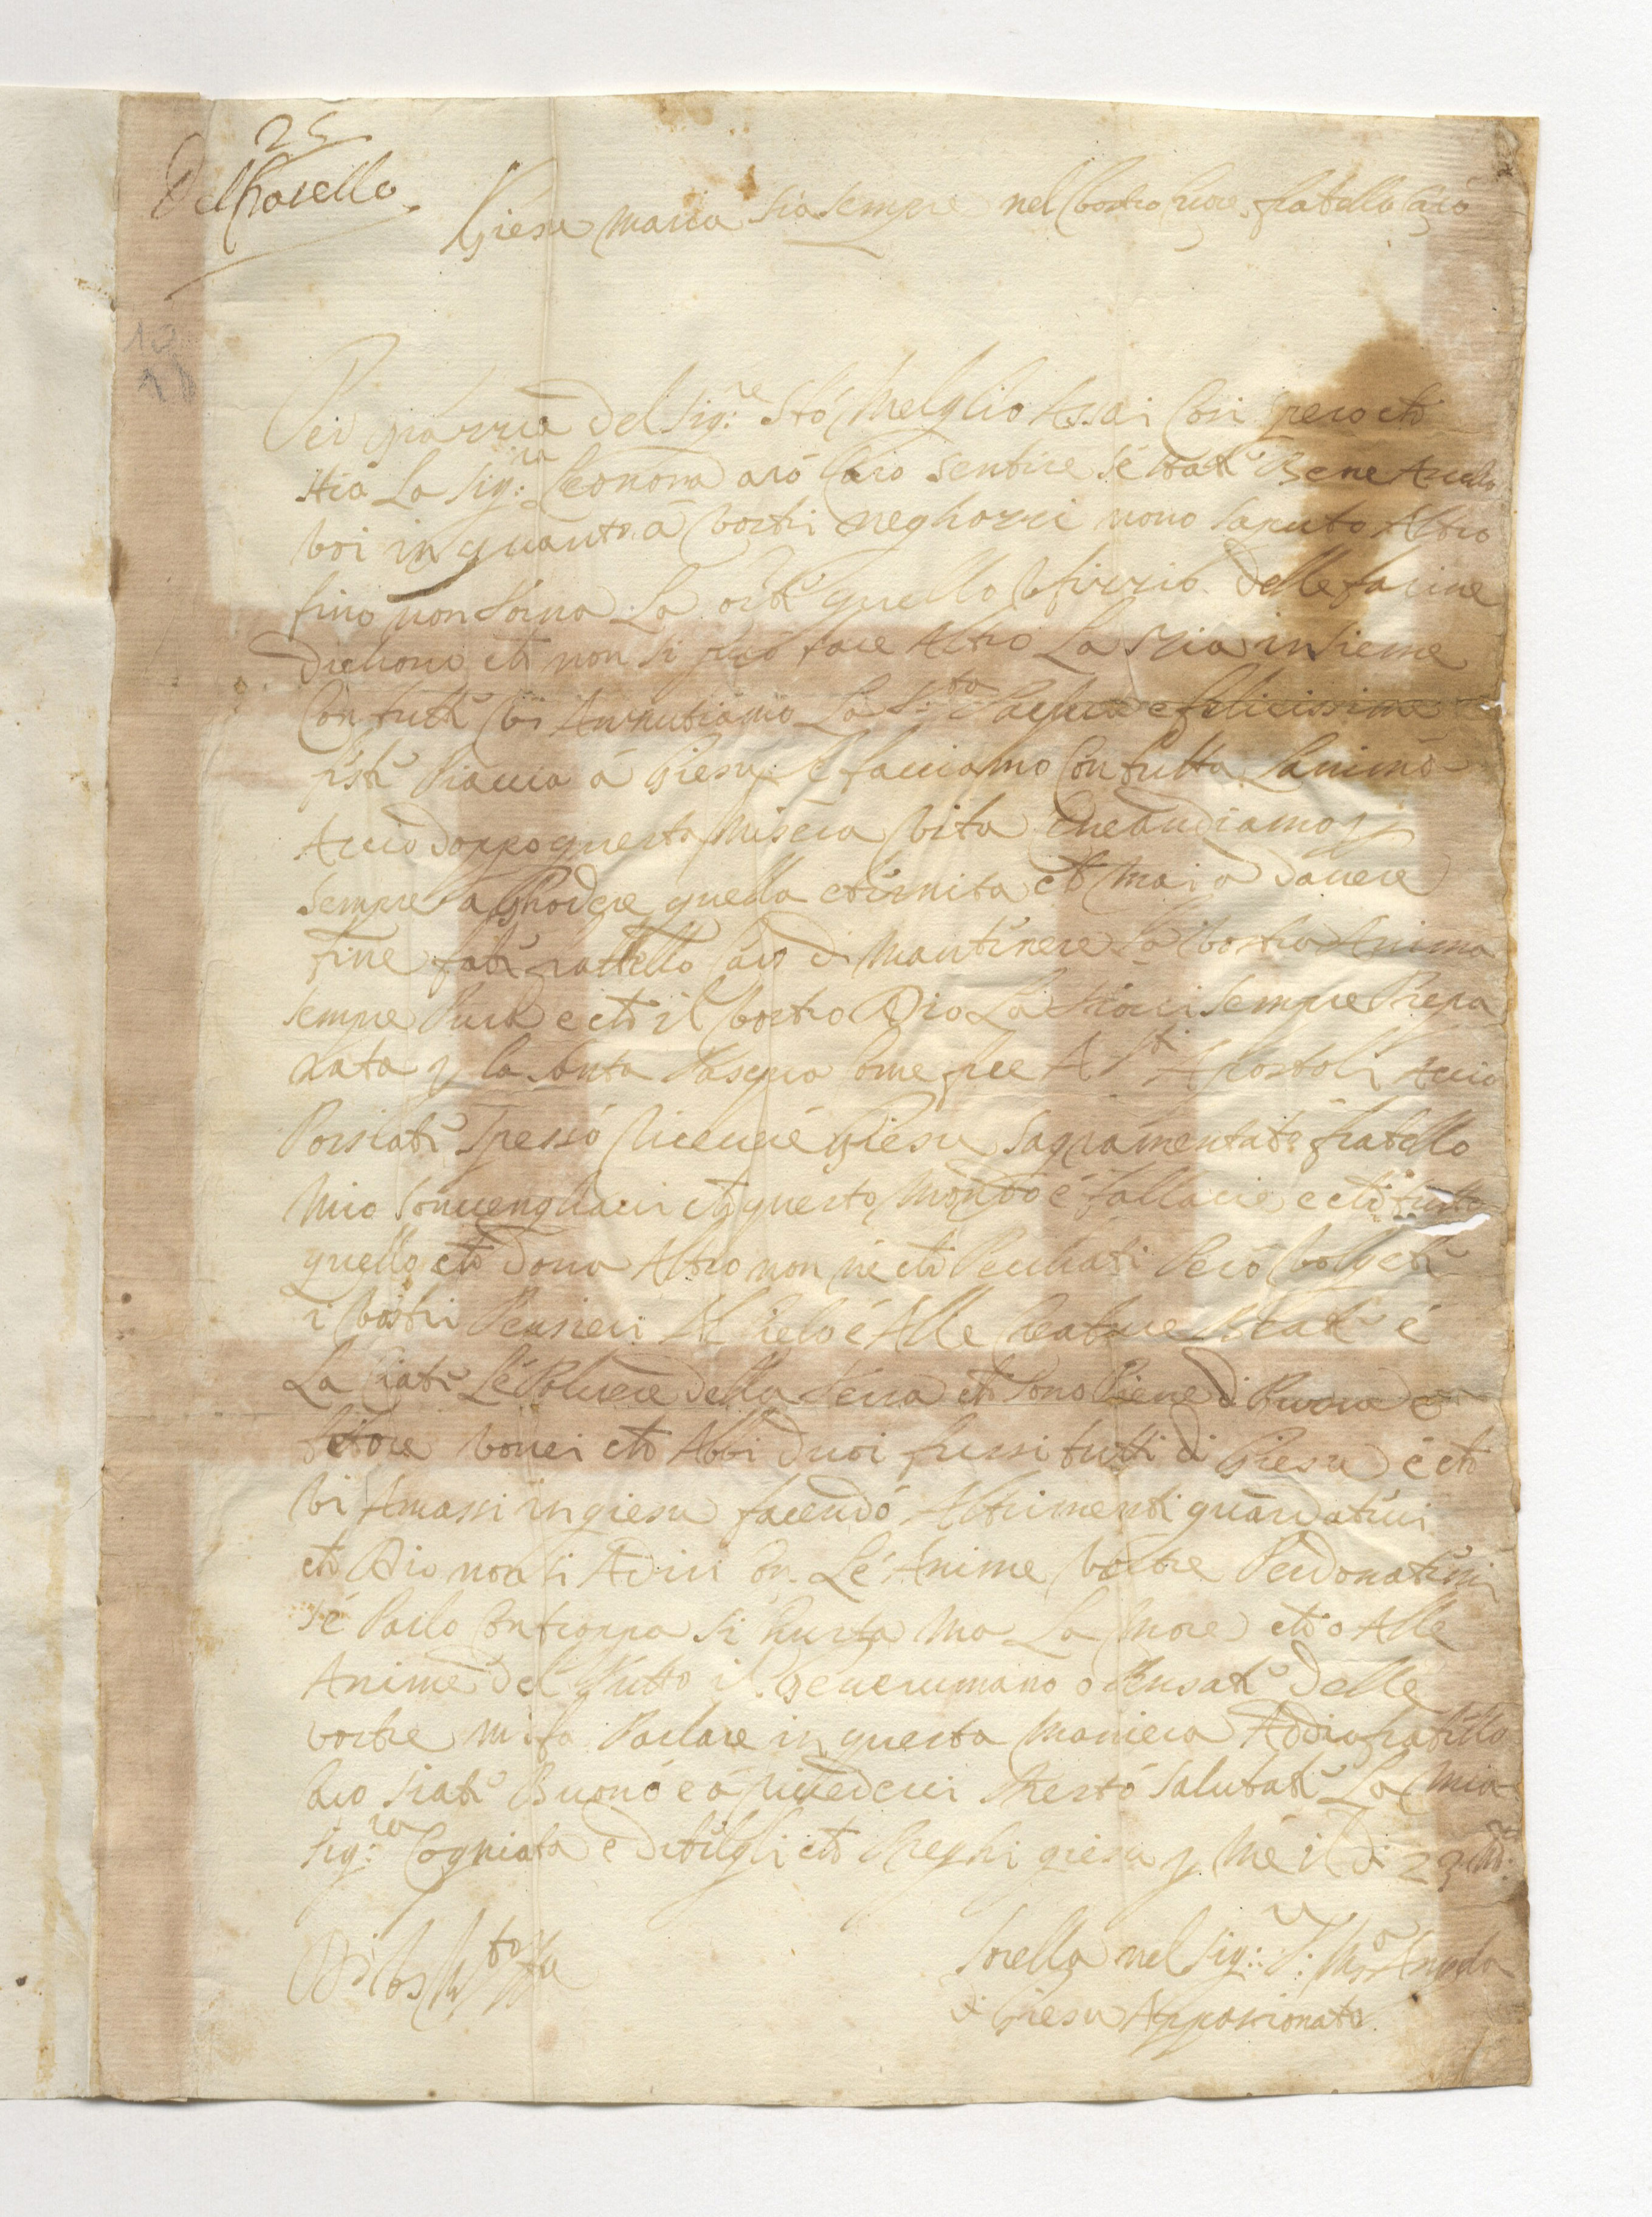 25
Del Rosello
Giesu Maria sia sempre nel bostro quore fratello caro
10
18
Per grazzia del Sig:re stó Melglio Assai Cosi spero che
stia La Sig:ra Leonora aró Caro sentire se state Bene Ancho
boi in quanto á bostri neghozzi nono saputo Altro
fino non torna La quello Ufizzio delle farine
dichono che non si può fare Altro La Mia insieme
Con tutte bi Annutiamo La S:ta Pasqua e felicissime
feste Piaccia á Giesu le facciamo Con tutta L'animo
Accio doppo questa Misera bita che andiamo
sempre a Ghodere quella eternita che Mai a d'auere
fine fate fratello caro di Mantenere La bostra Anima
sempre Pura e che il bostro Dio La trovi sempre Prepa
rata p la Santa Pasqua come fece A S.ti Apostoli Accio
Possiate spesso riceuere Giesu sagramentato fratello
Mio souuengliaui che questo Mondo é fallacie e che tutto
quello che dona Altro non né che Pecchati Peró bolgete
i bostri Pensieri Al Cielo é Alle Creature Beate é
La ciate Le Poluere della terra che sono Piene di Puzza é
fetore vorei che Abbi duoi fussi tutti di Giesu é che
bi Amassi in giesu facendó Altrimenti guardateui
che Dio non si Adiri con Le Anime bostre Perdonatemi
se Parlo Con troppa si Ma La more che o Alle
Anime del tutto il Gener umano o Pensate delle
vostre mi fa Parlare in questa Maniera Addio fratello
caro state Buonó e á riuederui Prestó salutate La Mia
Sig:ra Cogniata e ditelgli che Preghi giesu p Mé il di 23
Di bos
sorella nel Sig:re S: Ma Angela
di Giesu Appasionato